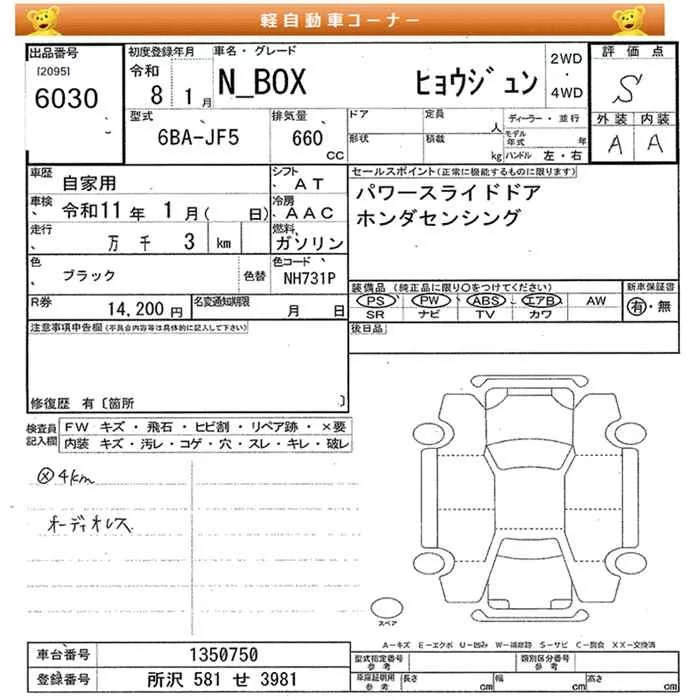 軽自動車コーナー
出品番号
[2095]
6030
初度登録年月
令和
8 1月
車名・グレード
N_BOX ヒョウジュン
2WD
・
4WD
評価点
S
外装 内装
A A
型式
6BA-JF5
排気量
660
CC
ドア
形状
定員
人
積載
kg
ディーラー・並行
モデル年式 年
ハンドル 左・右
車歴 自家用
シフト AT
車検 令和11年 1月( 日)
冷房 AAC
走行 万 千 3 km
燃料 ガソリン
色 ブラック 色替
色コード NH731P
R券 14,200円
名変通知期限 月 日
セールスポイント(正常に機能するものに限ります)
パワースライドドア
ホンダセンシング
装備品 (純正品に限り○をつけてください)
PS PW ABS エアB AW
SR ナビ TV カワ
新車保証書
有・無
後日品
注意事項申告欄(不具合内容等は具体的に記入して下さい)
修復歴 有〔箇所 〕
検査員記入欄
FW キズ・飛石・ヒビ割・リペア跡・×要
内装 キズ・汚レ・コゲ・穴・スレ・キレ・破レ
ⓧ4km
オーディオレス
スペア
A-キズ E-エクボ U-凹み W-補修跡 S-サビ C-腐食 XX-交換済
車台番号 1350750
登録番号 所沢 581 せ 3981
型式指定番号
参考
類別区分番号
参考
車庫証明用
参考
長さ cm 幅 cm 高さ cm